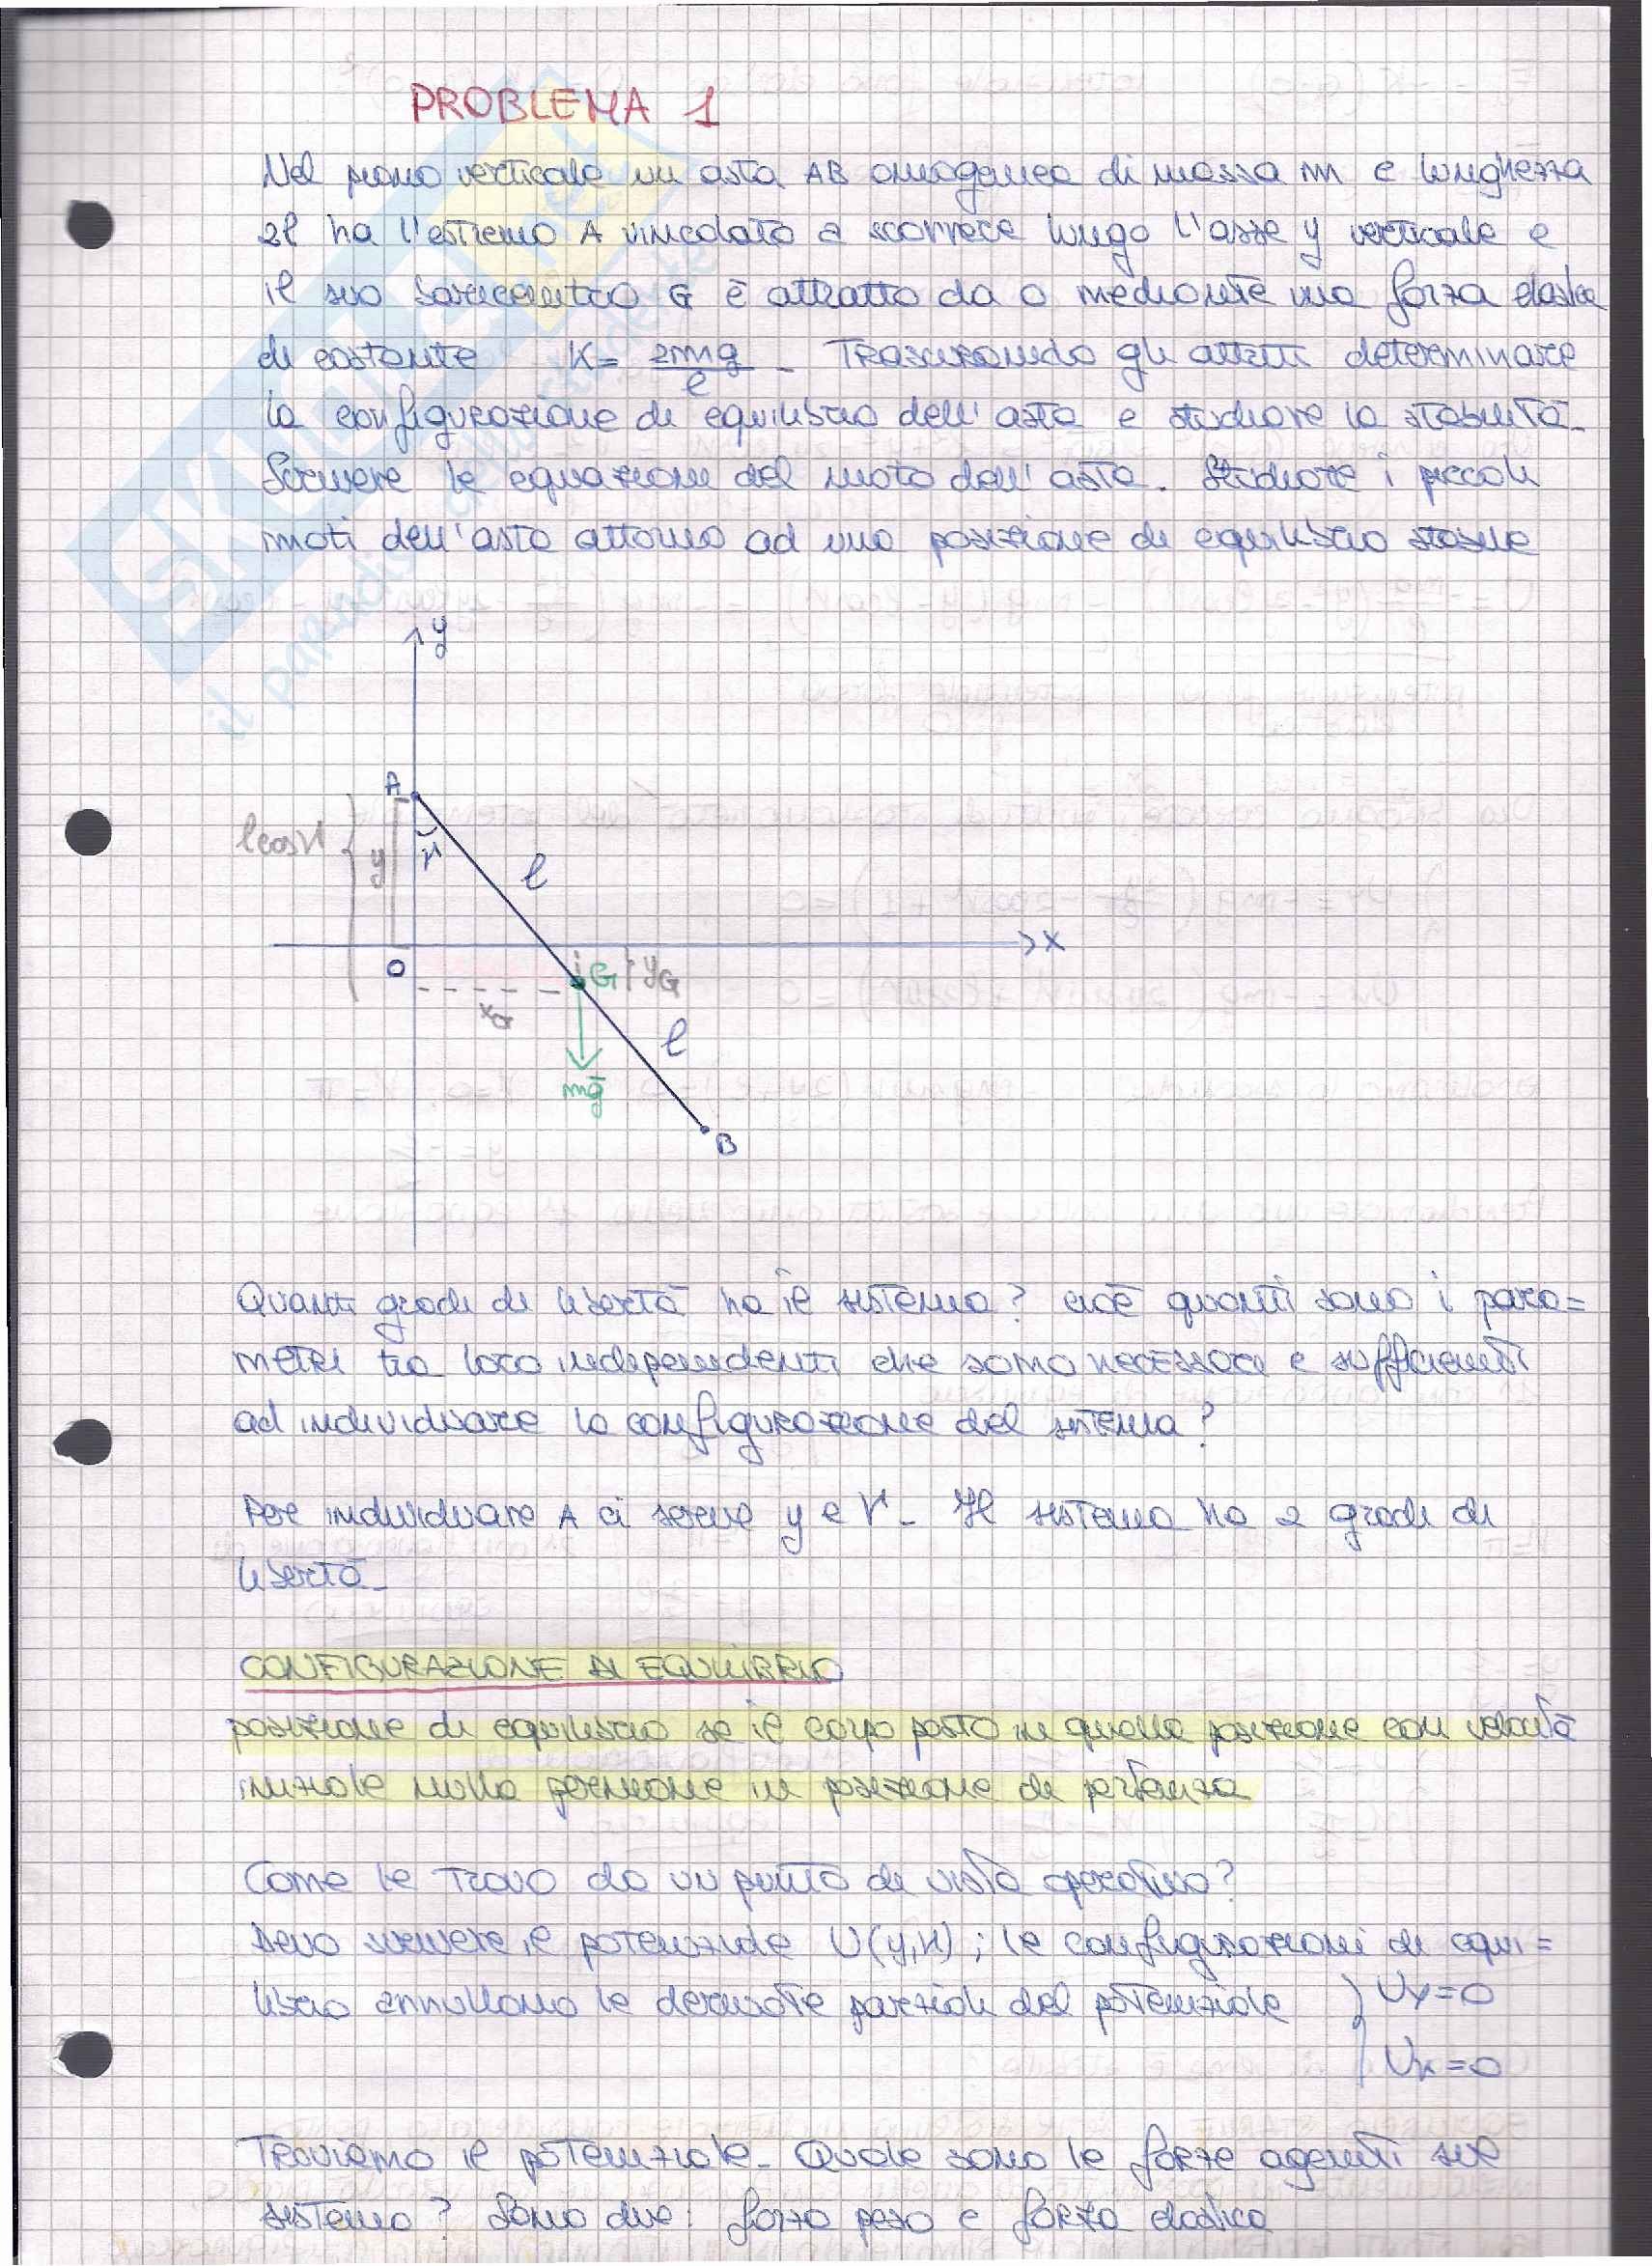 PROBLEMA 1
Nel piano verticale un asta AB omogenea di massa m e lunghezza
2l ha l'estremo A vincolato a scorrere lungo l'asse y verticale e
il suo baricentro G è attratto da O mediante una forza elastica
di costante K = 2mg/l - Trascurando gli attriti determinare
la configurazione di equilibrio dell'asta e studiare la stabilità -
Scrivere le equazioni del moto dell'asta. Studiare i piccoli
moti dell'asta attorno ad una posizione di equilibrio stabile
y
A
lcosϑ
y
ϑ
l
x
O
G
yG
xG
l
mg
B
Quanti gradi di libertà ha il sistema? cioè quanti sono i para=
metri tra loro indipendenti che sono necessari e sufficienti
ad individuare la configurazione del sistema?
Per individuare A ci serve y e ϑ - Il sistema ha 2 gradi di
libertà -
CONFIGURAZIONE DI EQUILIBRIO
posizione di equilibrio se il corpo posto in quella posizione con velocità
iniziale nulla permane in posizione di partenza
Come le trovo da un punto di vista operativo?
Devo scrivere il potenziale U(y,ϑ); le configurazioni di equi=
librio annullano le derivate parziali del potenziale { Uy=0
Uϑ=0
Troviamo il potenziale - Quale sono le forze agenti sul
sistema? Sono due: forza peso e forza elastica
SKUOLA.net
il paradiso dello studente